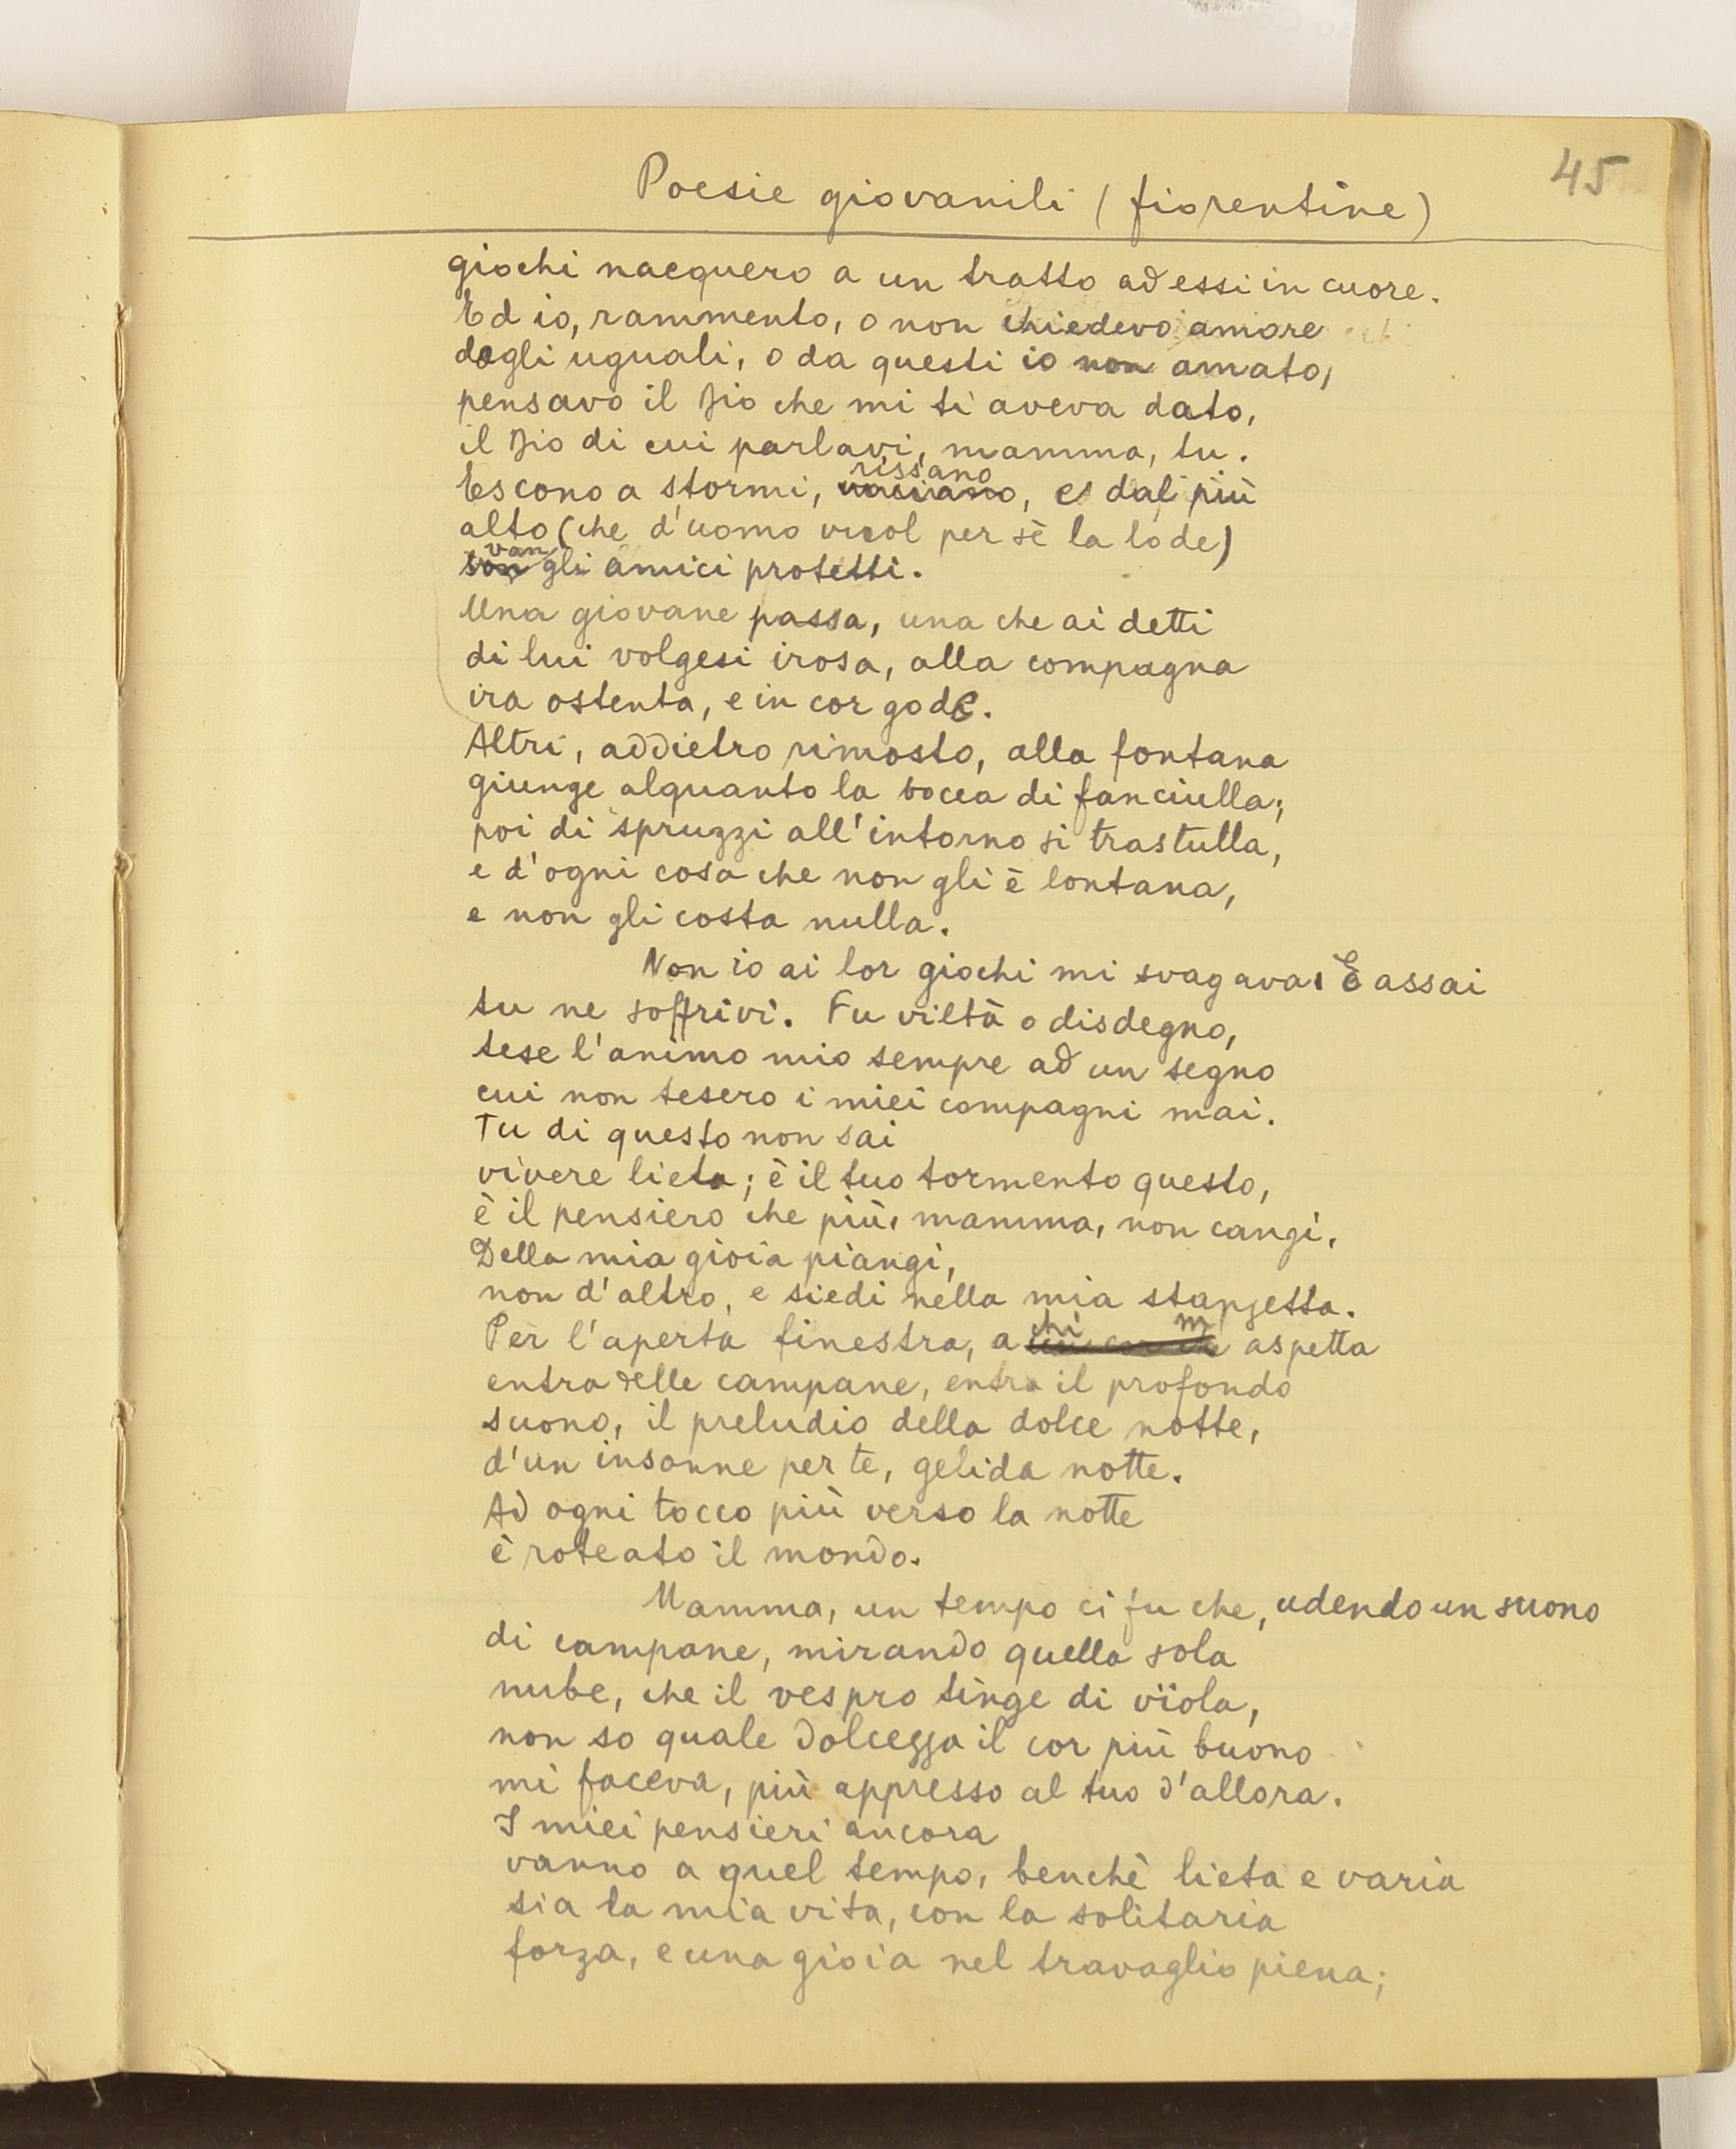 45
Poesie giovanili (fiorentine)
giochi nacquero a un tratto ad essi in cuore.
Ed io, rammento, o non chiedevo amore
dagli uguali, o da questi io non amato,
pensavo il Dio che mi ti aveva dato,
il Dio di cui parlavi, mamma, tu.
rissano
Escono a stormi, vociano, e dal più
alto (che d'uomo vuol per sè la lode)
van
son gli amici protetti.
Una giovane passa, una che ai detti
di lui volgesi irosa, alla compagna
ira ostenta, e in cor gode.
Altri, addietro rimosto, alla fontana
giunge alquanto la bocca di fanciulla;
poi di spruzzi all'intorno si trastulla,
e d'ogni cosa che non gli è lontana,
e non gli costa nulla.
Non io ai lor giochi mi svagava. E assai
tu ne soffrivi. Fu viltà o disdegno,
tese l'animo mio sempre ad un segno
cui non tesero i miei compagni mai.
Tu di questo non sai
vivere lieta; è il tuo tormento questo,
è il pensiero che più, mamma, non cangi.
Della mia gioia piangi,
non d'altro, e siedi nella mia stanzetta.
chi m
Per l'aperta finestra, a aspetta
entra delle campane, entra il profondo
suono, il preludio della dolce notte,
d'un insonne per te, gelida notte.
Ad ogni tocco più verso la notte
è roteato il mondo.
Mamma, un tempo ci fu che, udendo un suono
di campane, mirando quella sola
nube, che il vespro tinge di vïola,
non so quale dolcezza il cor più buono
mi faceva, più appresso al tuo d'allora.
I miei pensieri ancora
vanno a quel tempo, benchè lieta e varia
sia la mia vita, con la solitaria
forza, e una gioia nel travaglio piena;